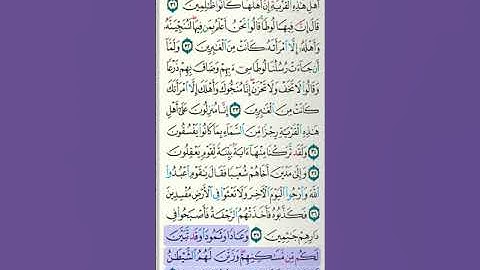 أَهْلِ هَٰذِهِ ٱلْقَرْيَةِ إِنَّ أَهْلَهَا كَانُوا۟ ظَٰلِمِينَ ٣١
قَالَ إِنَّ فِيهَا لُوطًا قَالُوا۟ نَحْنُ أَعْلَمُ بِمَن فِيهَا لَنُنَجِّيَنَّهُۥ
وَأَهْلَهُۥٓ إِلَّا ٱمْرَأَتَهُۥ كَانَتْ مِنَ ٱلْغَٰبِرِينَ ٣٢ وَلَمَّآ
أَن جَآءَتْ رُسُلُنَا لُوطًا سِىٓءَ بِهِمْ وَضَاقَ بِهِمْ ذَرْعًا
وَقَالُوا۟ لَا تَخَفْ وَلَا تَحْزَنْ إِنَّا مُنَجُّوكَ وَأَهْلَكَ إِلَّا ٱمْرَأَتَكَ
كَانَتْ مِنَ ٱلْغَٰبِرِينَ ٣٣ إِنَّا مُنزِلُونَ عَلَىٰٓ أَهْلِ
هَٰذِهِ ٱلْقَرْيَةِ رِجْزًا مِّنَ ٱلسَّمَآءِ بِمَا كَانُوا۟ يَفْسُقُونَ
٣٤ وَلَقَد تَّرَكْنَا مِنْهَآ ءَايَةًۢ بَيِّنَةً لِّقَوْمٍ يَعْقِلُونَ
٣٥ وَإِلَىٰ مَدْيَنَ أَخَاهُمْ شُعَيْبًا فَقَالَ يَٰقَوْمِ ٱعْبُدُوا۟
ٱللَّهَ وَٱرْجُوا۟ ٱلْيَوْمَ ٱلْءَاخِرَ وَلَا تَعْثَوْا۟ فِى ٱلْأَرْضِ مُفْسِدِينَ
٣٦ فَكَذَّبُوهُ فَأَخَذَتْهُمُ ٱلرَّجْفَةُ فَأَصْبَحُوا۟ فِى
دَارِهِمْ جَٰثِمِينَ ٣٧ وَعَادًا وَثَمُودَا۟ وَقَد تَّبَيَّنَ
لَكُم مِّن مَّسَٰكِنِهِمْ وَزَيَّنَ لَهُمُ ٱلشَّيْطَٰنُ